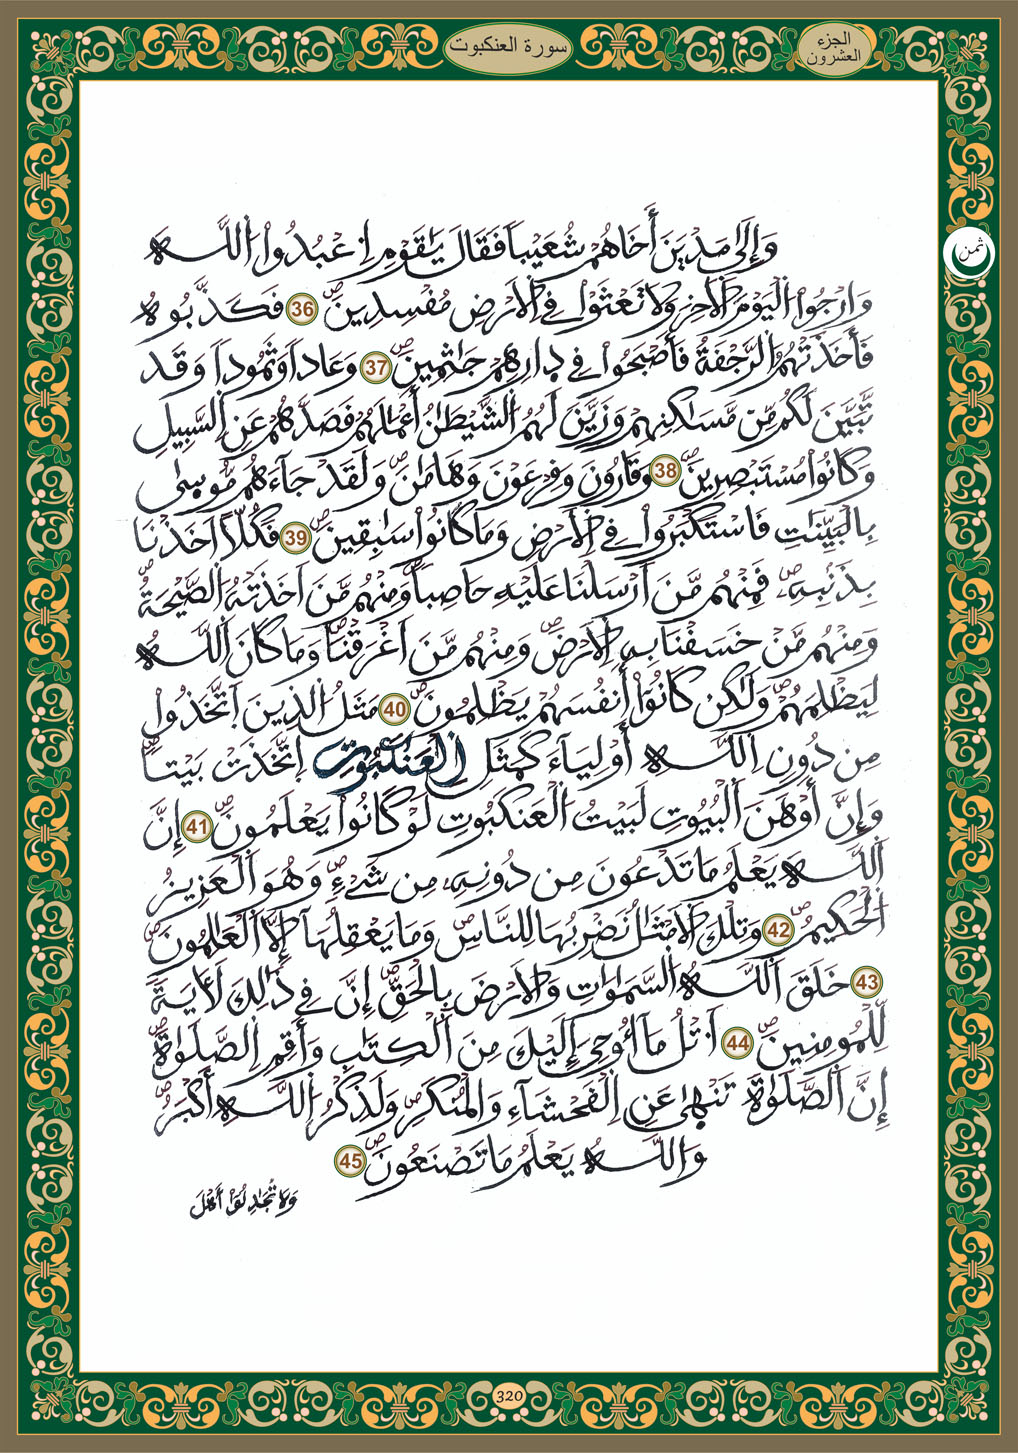 الجزء
العشرون
سورة العنكبوت
ثمن
وَإِلَىٰ مَدْيَنَ أَخَاهُمْ شُعَيْباً فَقَالَ يَٰقَوْمِ اِعْبُدُواْ اللَّهَ
وَارْجُواْ اليَوْمَ الَاخِرَ وَلَا تَعْثَوْاْ فِي الَارْضِ مُفْسِدِينَۖ 36 فَكَذَّبُوهُ
فَأَخَذَتْهُمُ الرَّجْفَةُ فَأَصْبَحُواْ فِي دِارِهِمْ جَٰثِمِينَۖ 37 وَعَاداً وَثَمُوداً وَقَد
تَّبَيَّنَ لَكُم مِّن مَّسَٰكِنِهِمْ وَزَيَّنَ لَهُمُ الشَّيْطَٰنُ أَعْمَٰلَهُمْ فَصَدَّهُمْ عَنِ السَّبِيلِ
وَكَانُواْ مُسْتَبْصِرِينَۖ 38 وَقَارُونَ وَفِرْعَوْنَ وَهَامَٰنَۖ وَلَقَدْ جَآءَهُم مُّوسِىٰ
بِالْبَيِّنَٰتِ فَاسْتَكْبَرُواْ فِي الَارْضِ وَمَا كَانُواْ سَٰبِقِينَۖ 39 فَكُلّاً اَخَذْنَا
بِذَنۢبِهِۦۖ فَمِنْهُم مَّنَ اَرْسَلْنَا عَلَيْهِ حَاصِباً وَمِنْهُم مَّنَ اَخَذَتْهُ الصَّيْحَةُۖ
وَمِنْهُم مَّنْ خَسَفْنَا بِهِ الَارْضَۖ وَمِنْهُم مَّنَ اَغْرَقْنَاۖ وَمَا كَانَ اللَّهُ
لِيَظْلِمَهُمْۖ وَلَٰكِن كَانُوٓاْ أَنفُسَهُمْ يَظْلِمُونَۖ 40 مَثَلُ الذِينَ اَتَّخَذُواْ
مِن دُونِ اِللَّهِ أَوْلِيَآءَ كَمَثَلِ اِلْعَنكَبُوتِ اِتَّخَذَتْ بَيْتاًۖ
وَإِنَّ أَوْهَنَ اَلْبُيُوتِ لَبَيْتُ الْعَنكَبُوتِ لَوْ كَانُواْ يَعْلَمُونَۖ 41 إِنَّ
اَللَّهَ يَعْلَمُ مَا تَدْعُونَ مِن دُونِهِۦ مِن شَےْءٍۖ وَهُوَ اَلْعَزِيزُ
الْحَكِيمُۖ 42 وَتِلْكَ الَامْثَٰلُ نَضْرِبُهَا لِلنَّاسِۖ وَمَا يَعْقِلُهَا إِلَّا الْعَٰلِمُونَۖ
43 خَلَقَ اَللَّهُ السَّمَٰوَٰتِ وَالَارْضَ بِالْحَقِّۖ إِنَّ فِي ذَٰلِكَ لَأٓيَةً
لِّلْمُومِنِينَۖ 44 اَتْلُ مَآ أُوحِيَ إِلَيْكَ مِنَ اَلْكِتَٰبِ وَأَقِمِ الصَّلَوٰةَۖ
إِنَّ اَلصَّلَوٰةَ تَنْهِىٰ عَنِ الْفَحْشَآءِ وَالْمُنكَرِۖ وَلَذِكْرُ اللَّهِ أَكْبَرُۖ
وَاللَّهُ يَعْلَمُ مَا تَصْنَعُونَۖ 45
وَلَا تُجَٰدِلُوٓاْ أَهْلَ
320